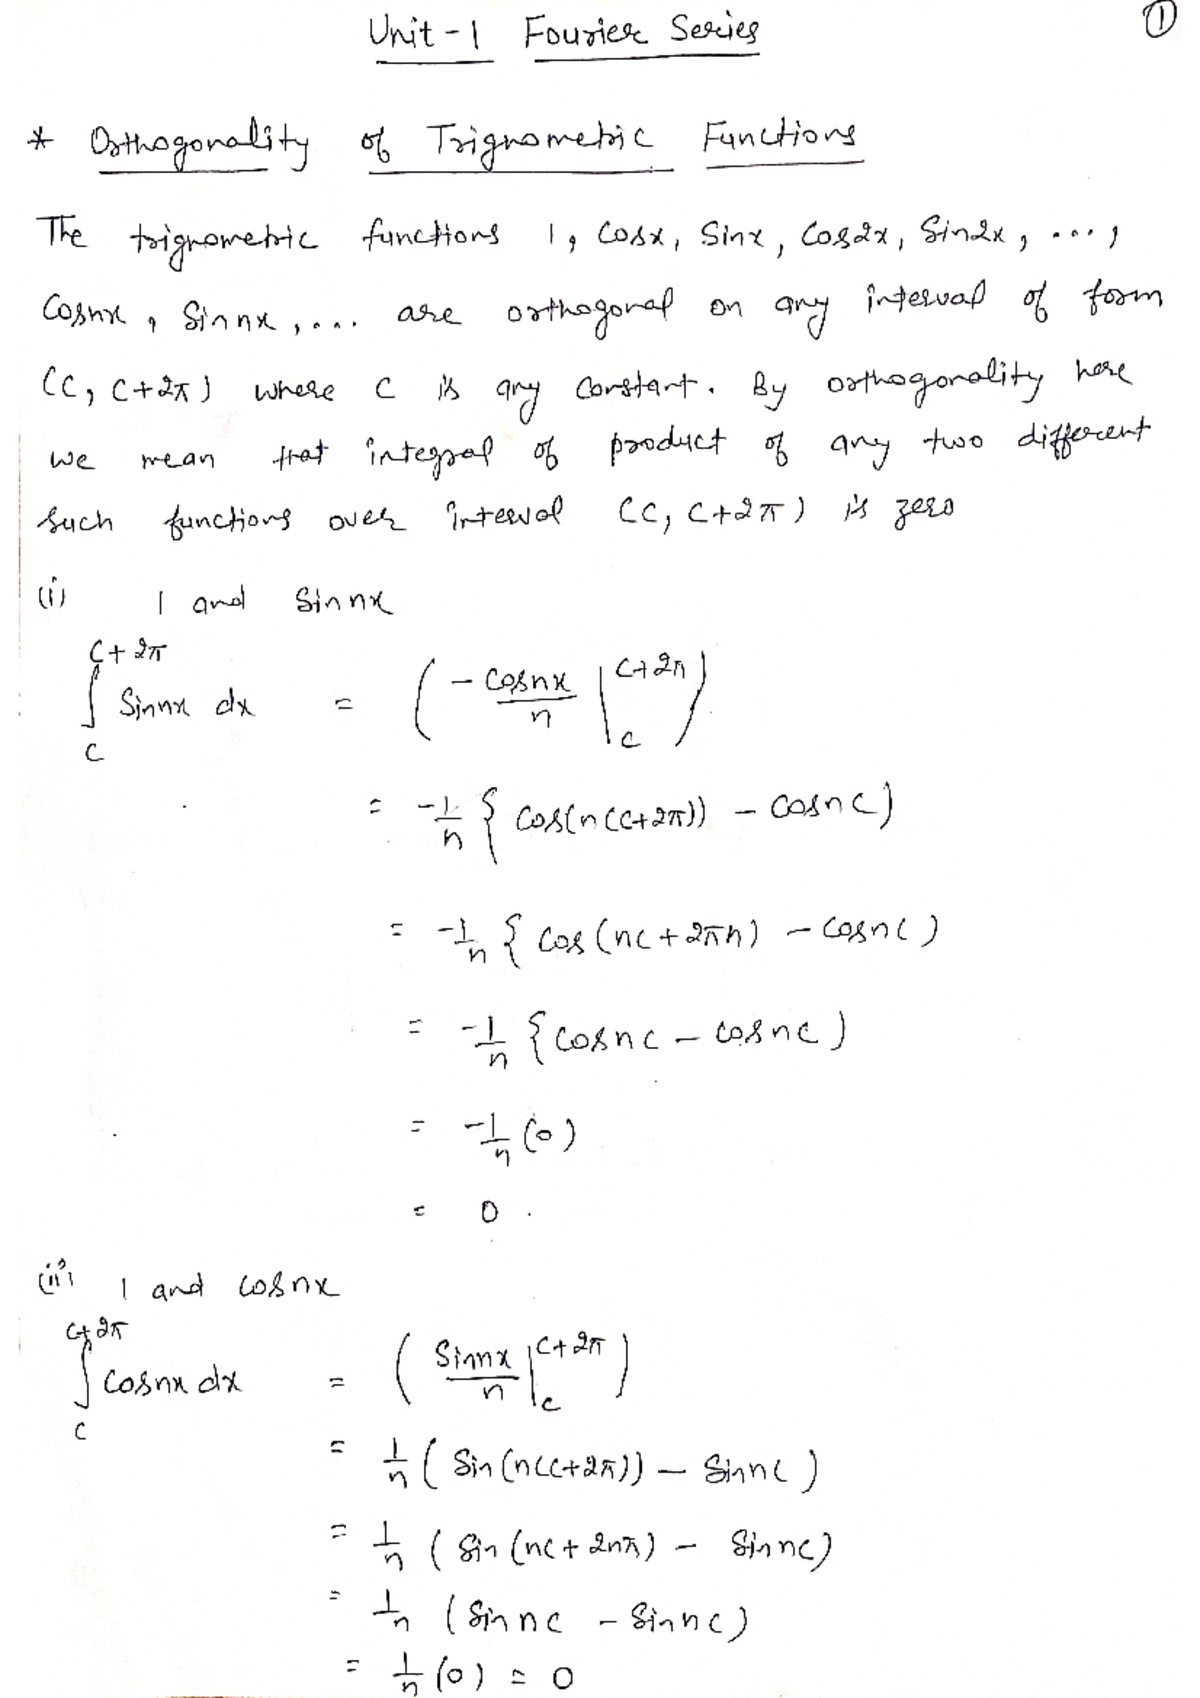 Unit-1 Fourier Series
①
* Orthogonality of Trignometric Functions
The trignometric functions 1, Cosx, Sinx, Cos2x, Sin2x, ....,
Cosnx, Sinnx, .... are orthogonal on any interval of form
(C, C+2π) where C is any constant. By orthogonality here
we mean that integral of product of any two different
such functions over interval (C, C+2π) is zero
(i) 1 and Sinnx
∫_C^{C+2π} Sinnx dx = ( -Cosnx/n |_C^{C+2π} )
= -1/n { Cos(n(C+2π)) - Cosnc }
= -1/n { Cos(nc+2πn) - Cosnc )
= -1/n { Cosnc - Cosnc )
= -1/n (0)
= 0.
(ii) 1 and Cosnx
∫_C^{C+2π} Cosnx dx = ( Sinnx/n |_C^{C+2π} )
= 1/n ( Sin(n(C+2π)) - Sinnc )
= 1/n ( Sin(nc+2nπ) - Sinnc)
= 1/n ( Sinnc - Sinnc)
= 1/n (0) = 0